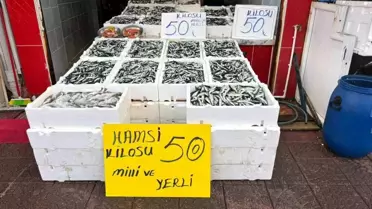 KİLOSU
50
KİLOSU
50
HAMSİ
KİLOSU 50
MİLLİ VE
YERLİ